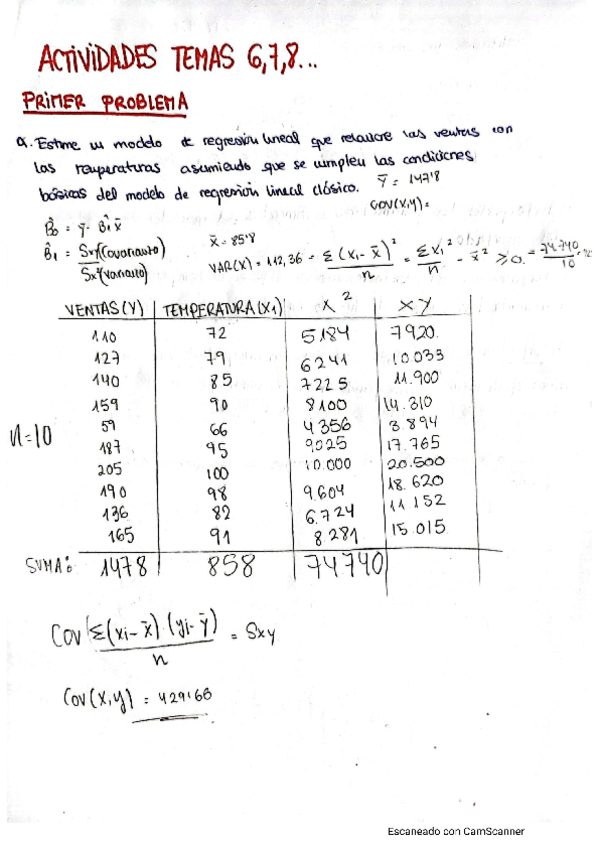 ACTIVIDADES TEMAS 6,7,8...
PRIMER PROBLEMA
a. Estime un modelo de regresión lineal que relacione las ventas con
las temperaturas asumiendo que se cumplen las condiciones
básicas del modelo de regresión lineal clásico. ȳ = 147'8
COV(X,Y) =
β̂0 = ȳ - β̂1 x̄
β̂1 = Sxy (covarianza) / Sx² (varianza)
x̄ = 85'8
VAR(X) = 112,36 = Σ(xi - x̄)² / n = Σxi² / n - x̄² ≥ 0 = 74.740 / 10
VENTAS (Y) TEMPERATURA (X1) X² XY
110 72 5184 7920
127 79 6241 10.033
140 85 7225 11.900
159 90 8100 14.310
59 66 4356 3.894
187 95 9.025 17.765
205 100 10.000 20.500
190 98 9.604 18.620
136 82 6.724 11 152
165 91 8 281 15.015
n=10
SUMA: 1478 858 74740
Cov (Σ(xi - x̄)·(yi - ȳ) / n = Sxy
Cov(x,y) = 429'166
Escaneado con CamScanner